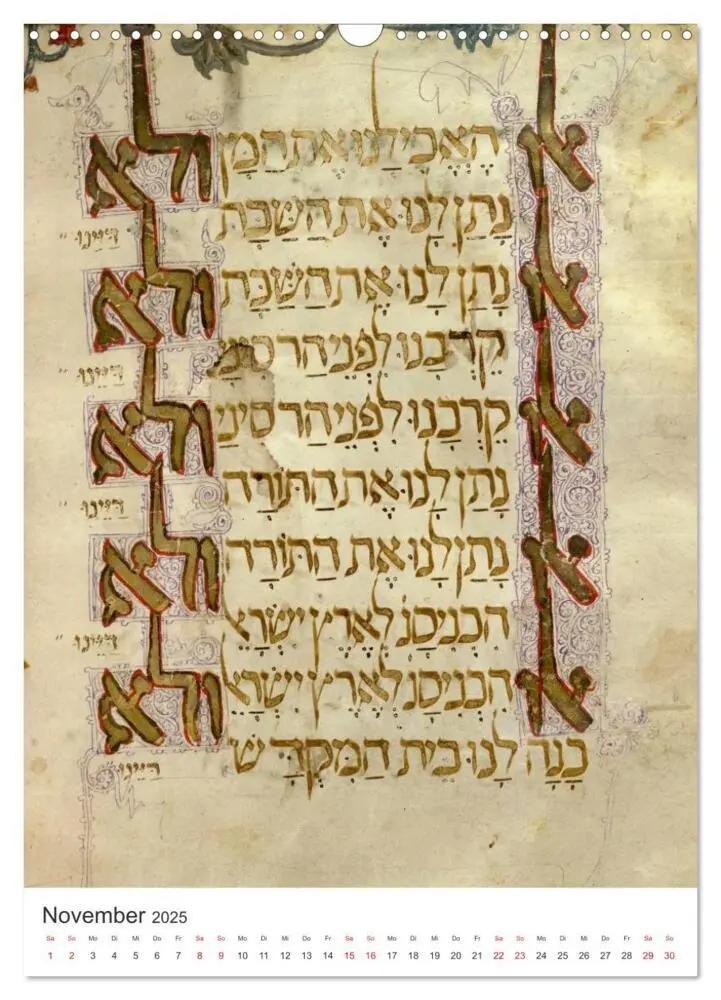 אלו הֶאֱכִילָנוּ אֶת הַמָּן ולא
נָתַן לָנוּ אֶת הַשַּׁבָּת דַּיֵּינוּ
אלו נָתַן לָנוּ אֶת הַשַּׁבָּת ולא
קֵרְבָנוּ לִפְנֵי הַר סִינַי דַּיֵּינוּ
אלו קֵרְבָנוּ לִפְנֵי הַר סִינַי ולא
נָתַן לָנוּ אֶת הַתּוֹרָה דַּיֵּינוּ
אלו נָתַן לָנוּ אֶת הַתּוֹרָה ולא
הִכְנִיסָנוּ לְאֶרֶץ יִשְׂרָאֵל דַּיֵּינוּ
אלו הִכְנִיסָנוּ לְאֶרֶץ יִשְׂרָאֵל ולא
בָּנָה לָנוּ בֵּית הַמִּקְדָּשׁ דַּיֵּינוּ
November 2025
Sa So Mo Di Mi Do Fr Sa So Mo Di Mi Do Fr Sa So Mo Di Mi Do Fr Sa So Mo Di Mi Do Fr Sa So
1 2 3 4 5 6 7 8 9 10 11 12 13 14 15 16 17 18 19 20 21 22 23 24 25 26 27 28 29 30